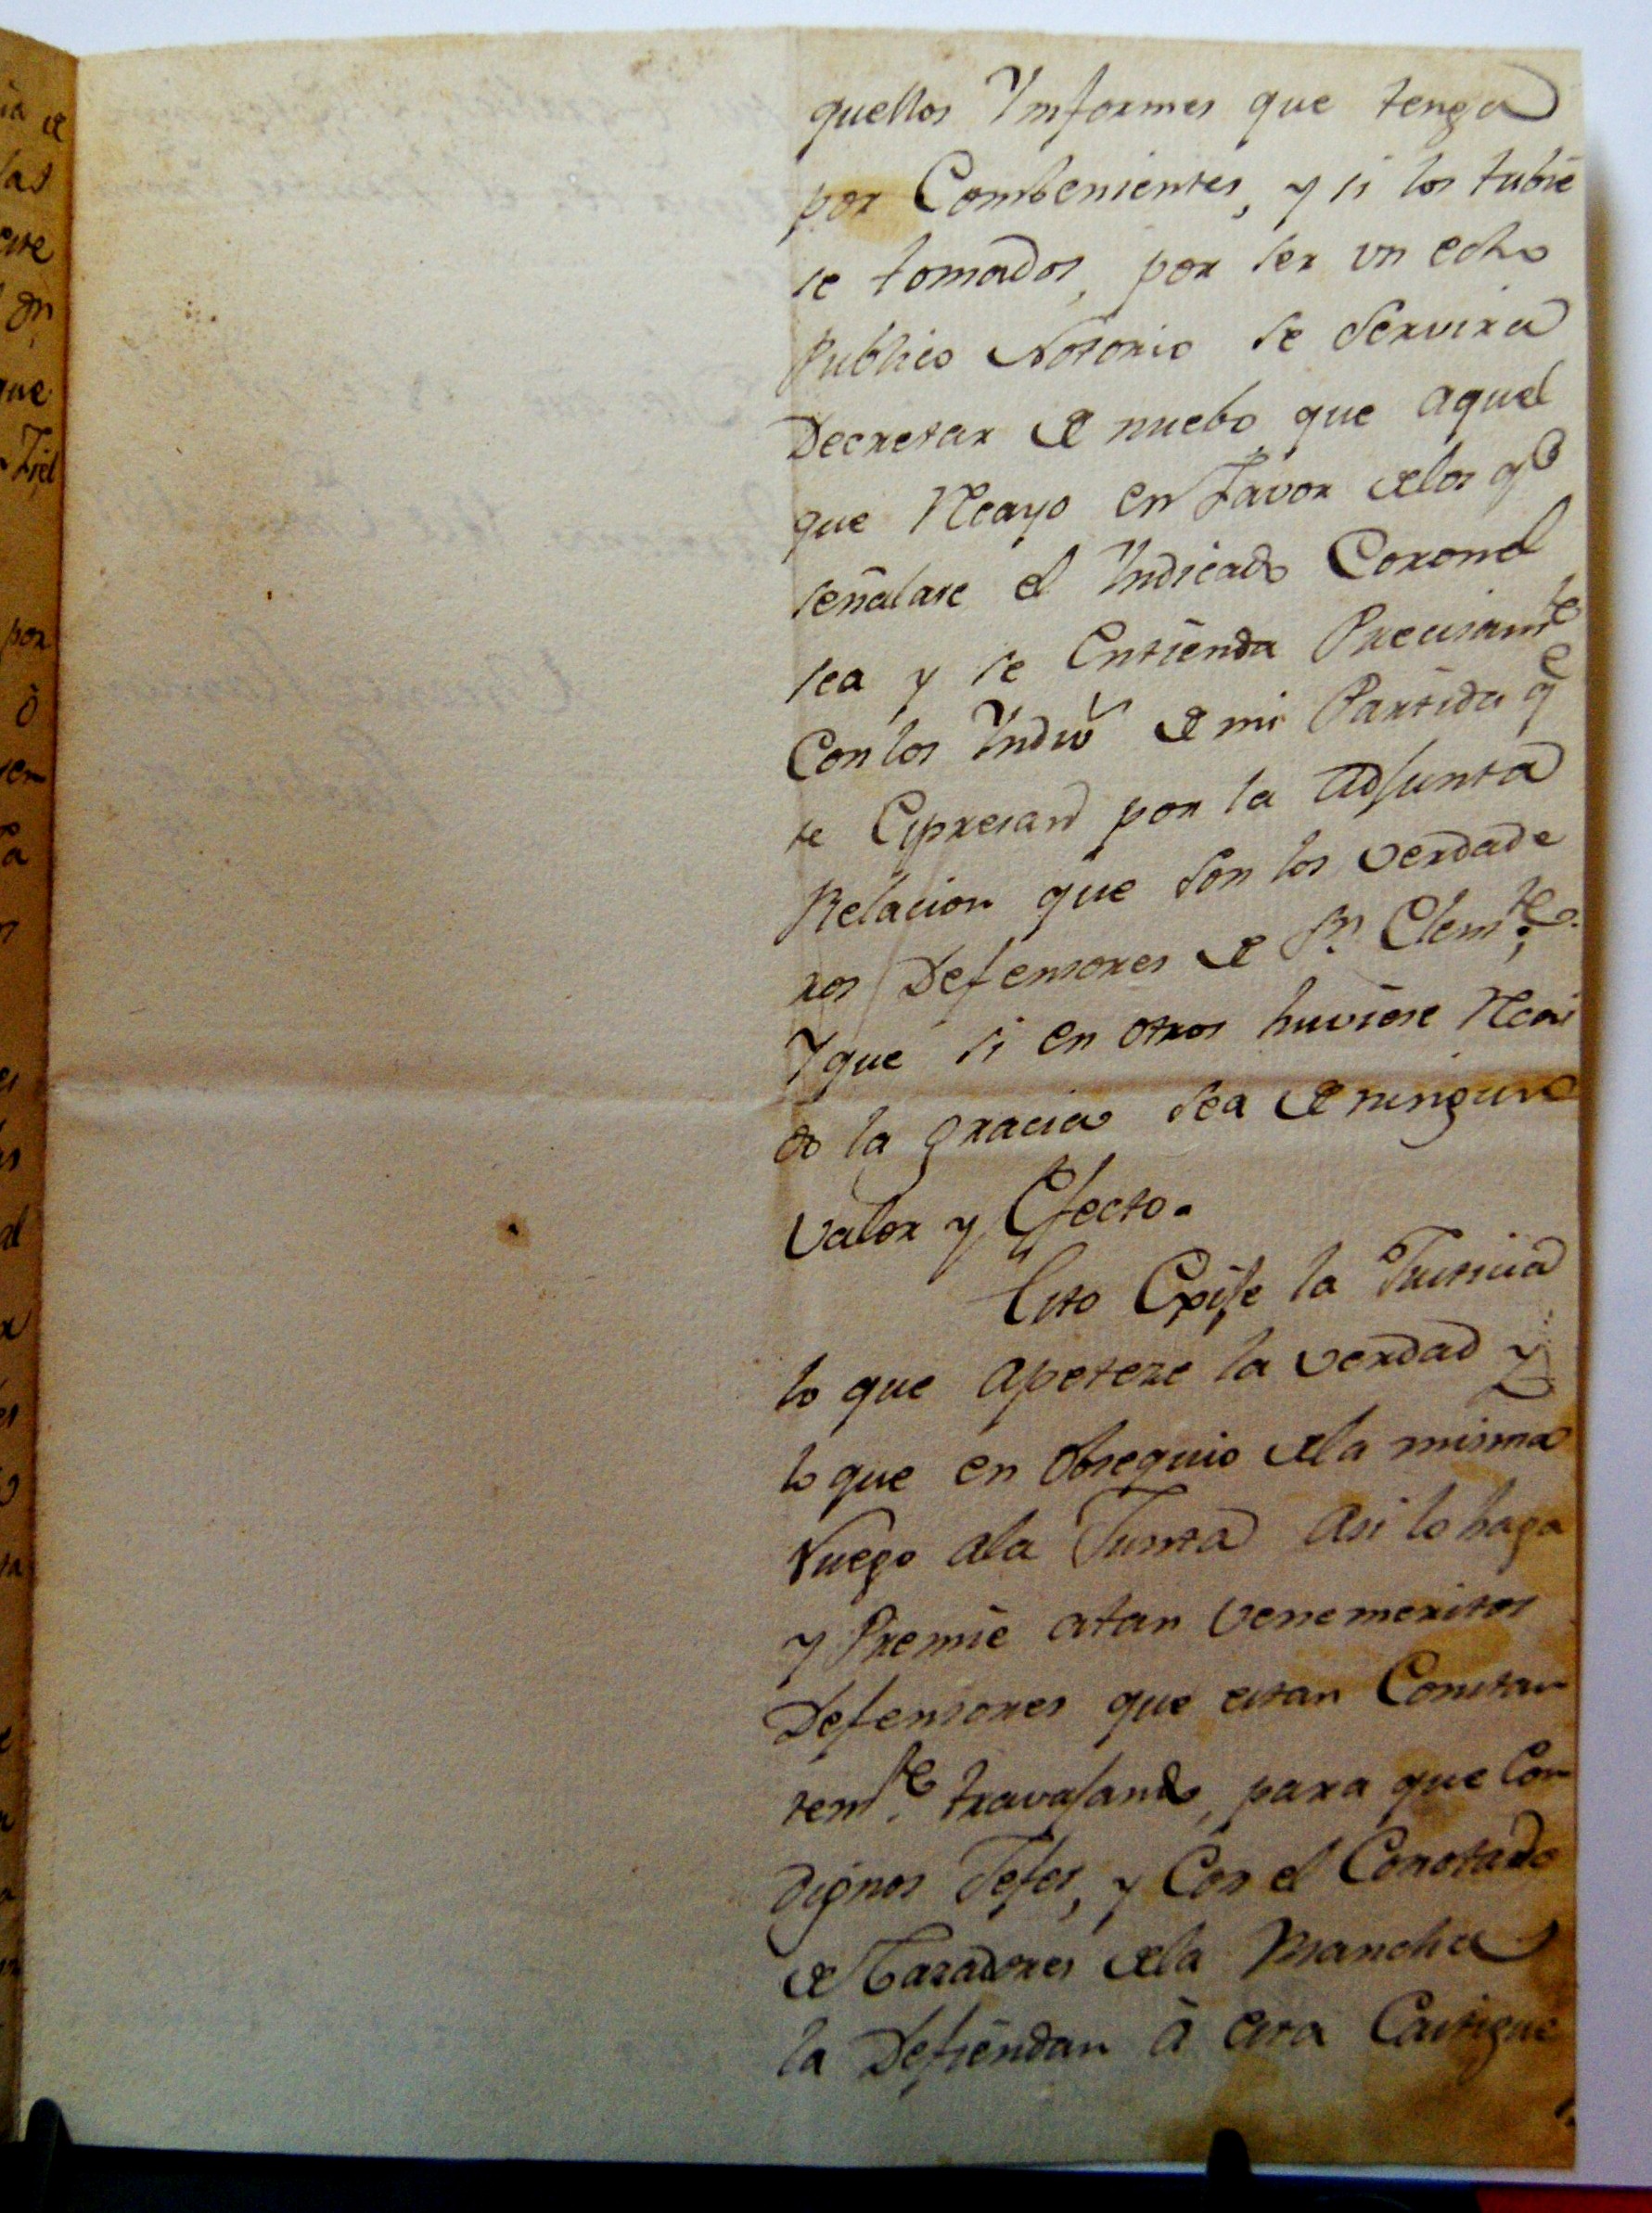 quellos Ymformes que tenga
por Combenientes, y si los tubie
se tomados, por ser un echo
Publico Notorio se servira
Decretar de nuebo que aquel
que Recayo en Favor delos qe
señalase el Yndicado Coronel
sea y se Entienda Precisamte
Con los Yndivs de mi Partida qe
se Espresan por la adjunta
Relacion que son los verdade
ros Defensores de Sn Clemte.
Y que si en otros huviese Recai
do la gracia sea de ninguno
valor y Efecto.
Esto Exije la Justicia
lo que apeteze la verdad y
lo que en obsequio dela misma
Ruego ala Junta asi lo haga
y Premie atan venemeritos
Defensores que estan Constan
temte travajando, para que Con
Dignos Jefes, y Con el Conotado
de Cazadores dela Mancha
la Defiendan â esta Castigue
ia de
las
este
que
Fiel
por
ò